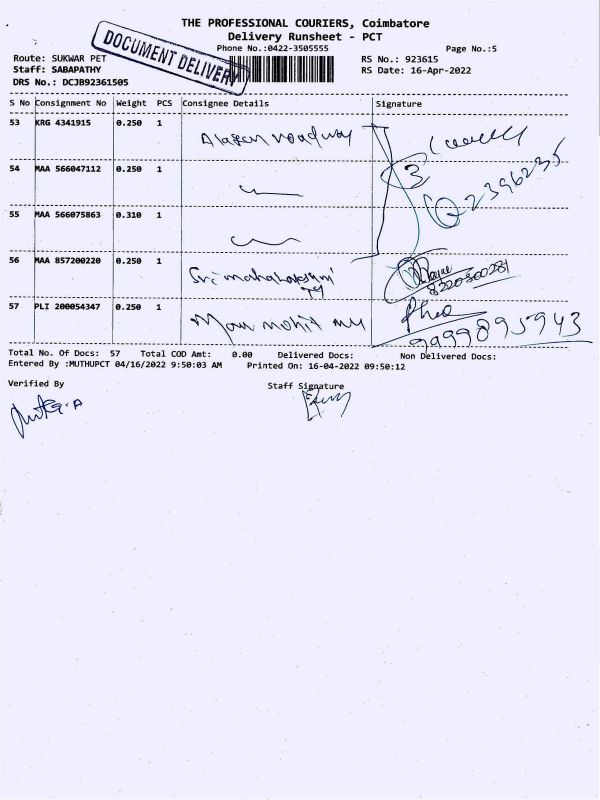 THE PROFESSIONAL COURIERS, Coimbatore
Delivery Runsheet - PCT
Phone No.:0422-3505555
Page No.:5
DOCUMENT DELIVERY
Route: SUKWAR PET
RS No.: 923615
Staff: SABAPATHY
RS Date: 16-Apr-2022
DRS No.: DCJB92361505
S No Consignment No Weight PCS Consignee Details Signature
53 KRG 4341915 0.250 1
54 MAA 566047112 0.250 1 3
55 MAA 566075863 0.310 1
56 MAA 857200220 0.250 1 Sri mahalakshmi
57 PLI 200054347 0.250 1
Total No. Of Docs: 57 Total COD Amt: 0.00 Delivered Docs: Non Delivered Docs:
Entered By :MUTHUPCT 04/16/2022 9:50:03 AM Printed On: 16-04-2022 09:50:12
Verified By Staff Signature